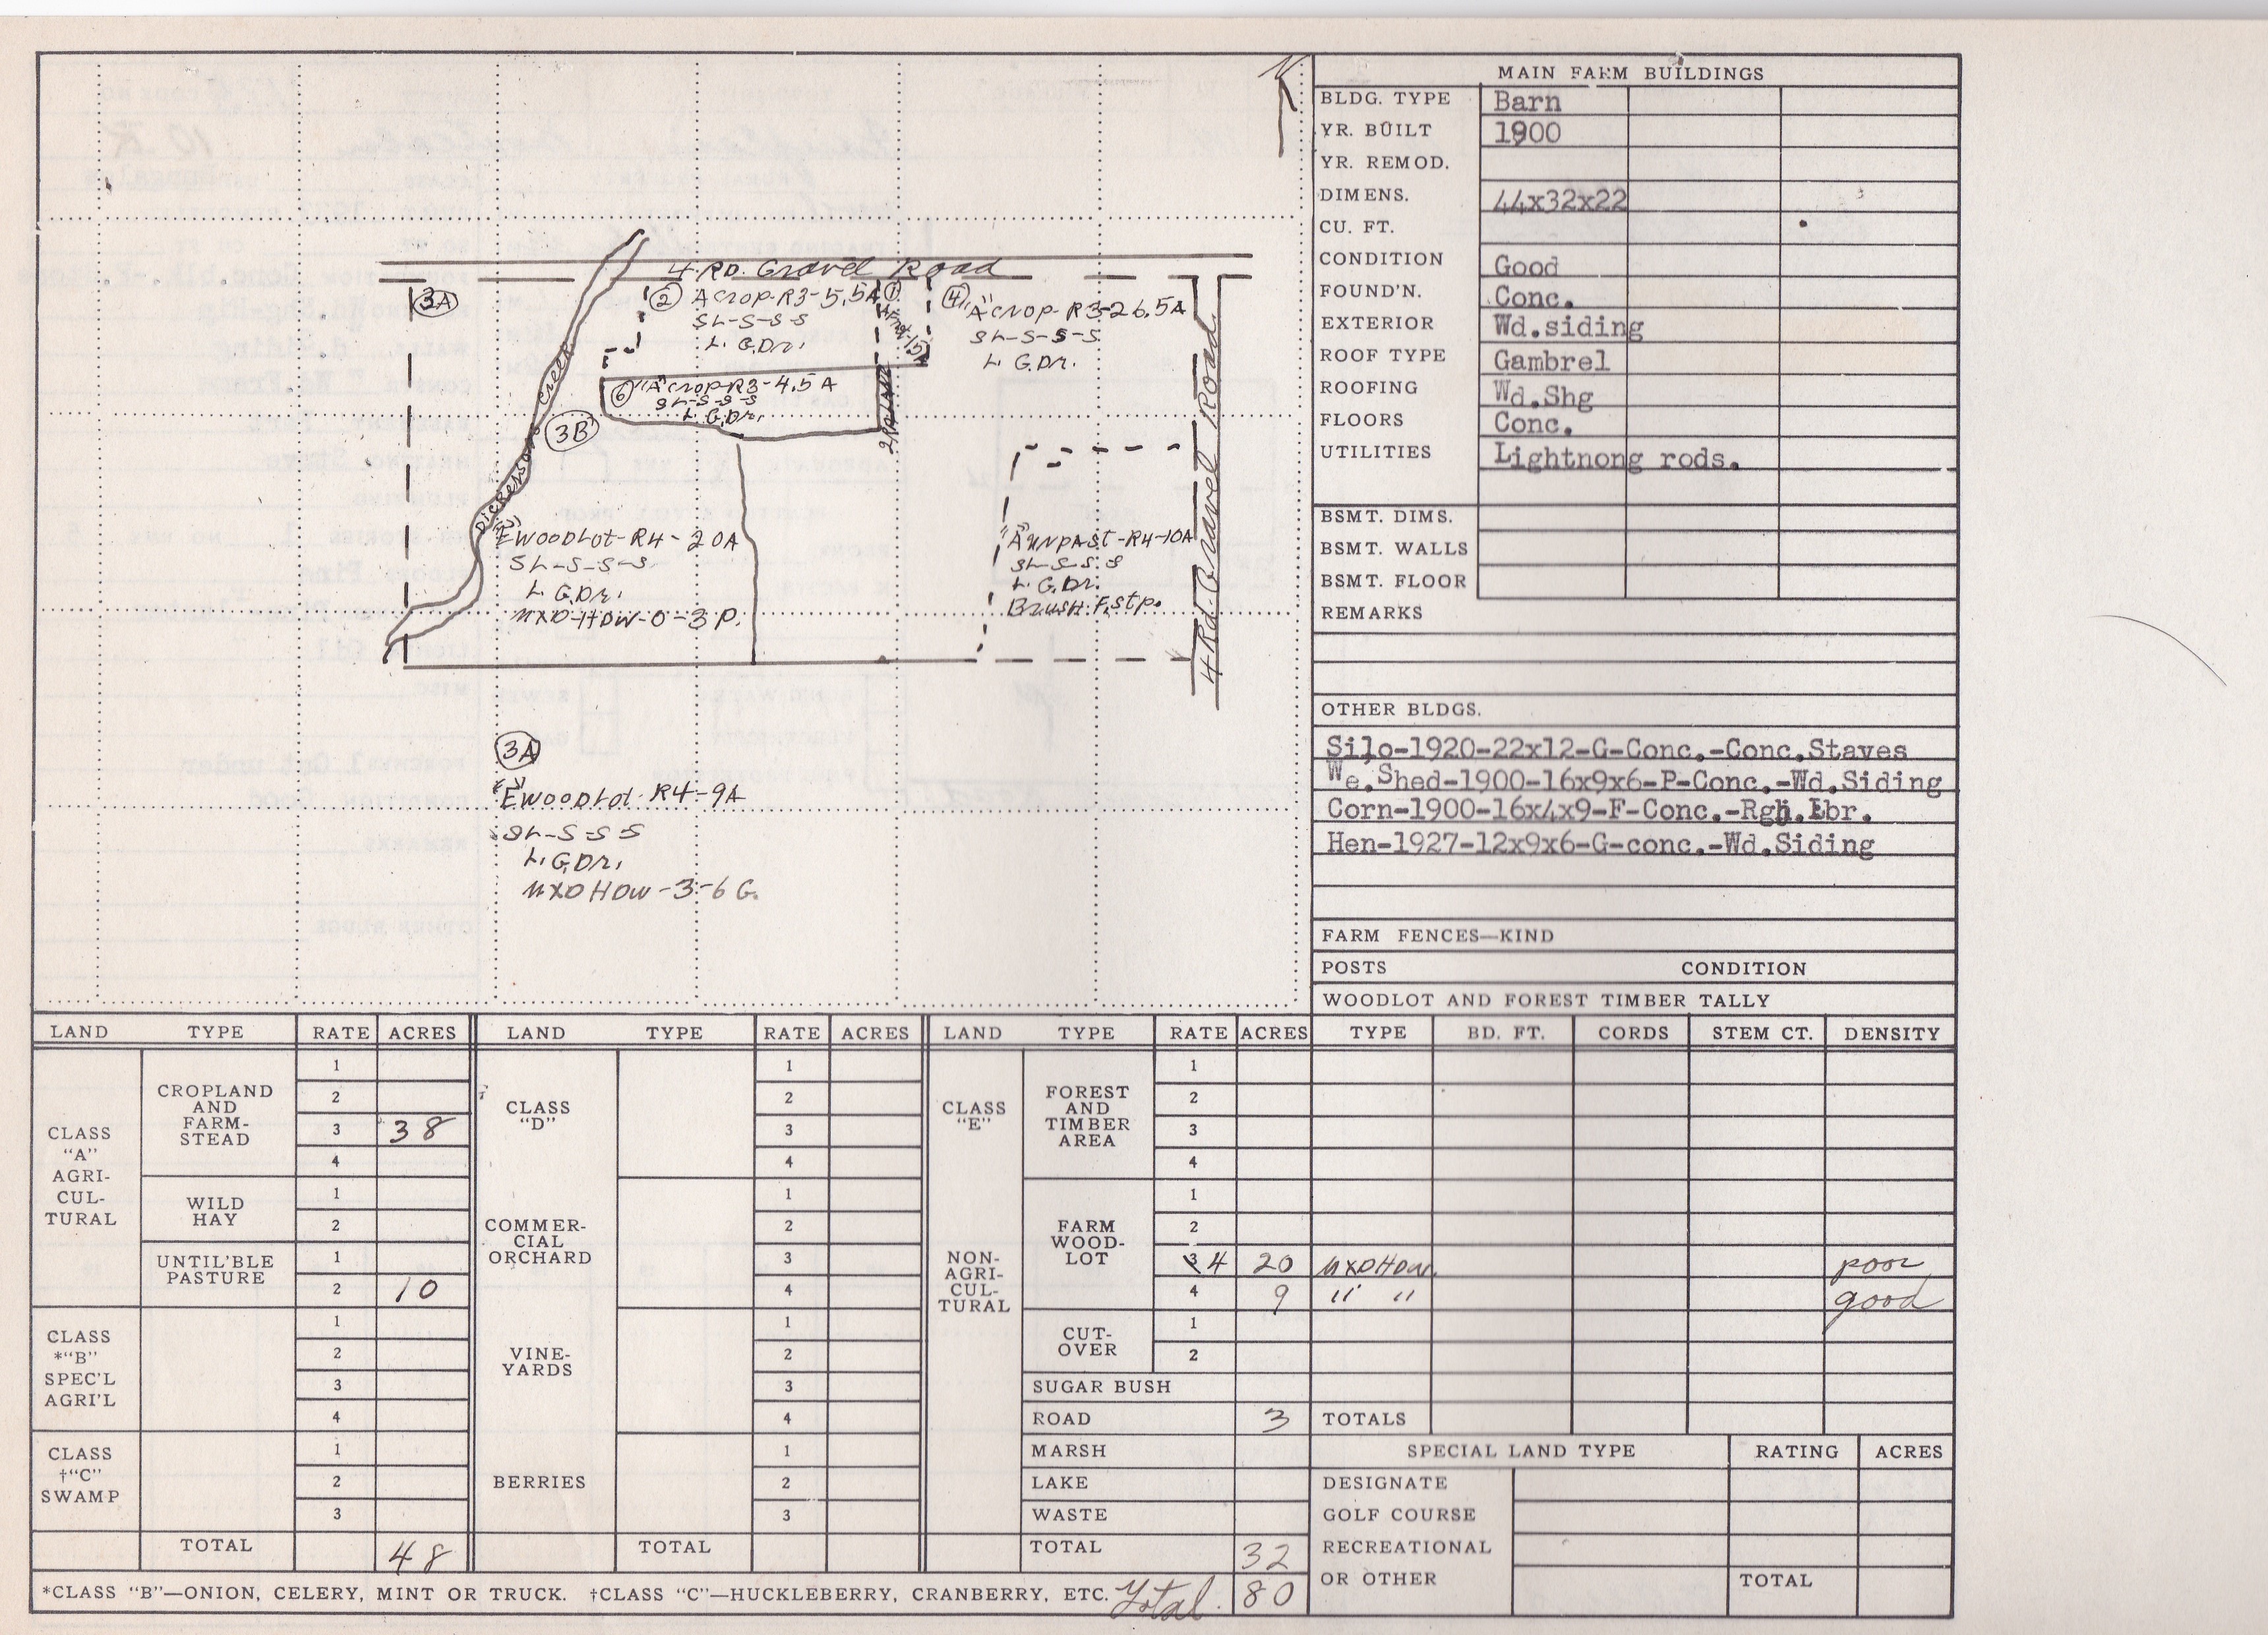 N
4 RD. Gravel Road
3A
2 A crop-R3-5.5A
SL-S-S-S
L. G.Dr.
1
4 "A" crop-R3-26.5A
SL-S-S-S
L G.Dr.
6 "A" crop-R3-4.5A
SL-S-S-S
L. G.Dr.
2RdLANE
Dickerson Creek
3B
4 Rd. Gravel Road
"E" WOODLot-R4-20A
SL-S-S-S
L. G.Dr.
MXD-HDW-0-3 P.
"A" UNPAST-R4-10A
SL-S-S-S
L. G.Dr.
Brush. F. stp.
3A
"E" WOODLot R4-9A
SL-S-S-S
L. G.Dr.
MXD HDW-3-6 G.
MAIN FARM BUILDINGS
BLDG. TYPE Barn
YR. BUILT 1900
YR. REMOD.
DIMENS. 44x32x22
CU. FT.
CONDITION Good
FOUND'N. Conc.
EXTERIOR Wd.siding
ROOF TYPE Gambrel
ROOFING Wd.Shg
FLOORS Conc.
UTILITIES Lightnong rods.
BSMT. DIMS.
BSMT. WALLS
BSMT. FLOOR
REMARKS
OTHER BLDGS.
Silo-1920-22x12-G-Conc.-Conc.Staves
We.Shed-1900-16x9x6-P-Conc.-Wd.Siding
Corn-1900-16x4x9-F-Conc.-Rgh.Lbr.
Hen-1927-12x9x6-G-conc.-Wd.Siding
FARM FENCES—KIND
POSTS CONDITION
WOODLOT AND FOREST TIMBER TALLY
TYPE BD. FT. CORDS STEM CT. DENSITY
MXDHDW. poor
" " good
TOTALS
SPECIAL LAND TYPE RATING ACRES
DESIGNATE
GOLF COURSE
RECREATIONAL
OR OTHER TOTAL
LAND TYPE RATE ACRES
CLASS
"A"
AGRI-
CUL-
TURAL
CROPLAND
AND
FARM-
STEAD
1
2
3 38
4
WILD
HAY
1
2
UNTIL'BLE
PASTURE
1
2 10
CLASS
*"B"
SPEC'L
AGRI'L
1
2
3
4
CLASS
†"C"
SWAMP
1
2
3
TOTAL 48
LAND TYPE RATE ACRES
CLASS
"D"
1
2
3
4
COMMER-
CIAL
ORCHARD
1
2
3
4
VINE-
YARDS
1
2
3
4
BERRIES
1
2
3
TOTAL
LAND TYPE RATE ACRES
CLASS
"E"
NON-
AGRI-
CUL-
TURAL
FOREST
AND
TIMBER
AREA
1
2
3
4
FARM
WOOD-
LOT
1
2
3 4 20
4 9
CUT-
OVER
1
2
SUGAR BUSH
ROAD 3
MARSH
LAKE
WASTE
TOTAL 32
*CLASS "B"—ONION, CELERY, MINT OR TRUCK. †CLASS "C"—HUCKLEBERRY, CRANBERRY, ETC. Total. 80